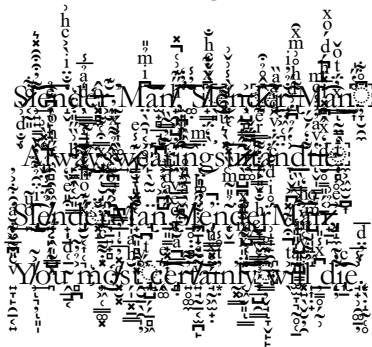 Slender Man Slender Man
Always wearing suit and tie
Slender Man Slender Man
You most certainly will die.